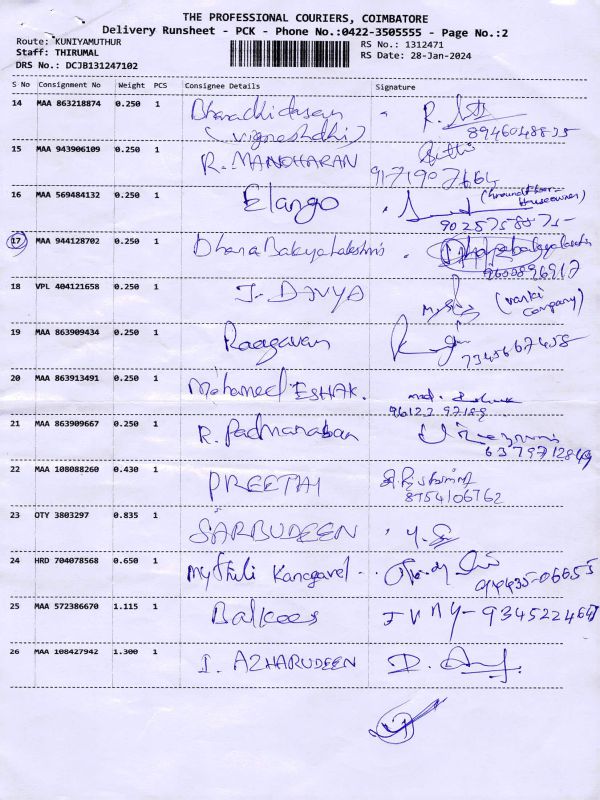 THE PROFESSIONAL COURIERS, COIMBATORE
Delivery Runsheet - PCK - Phone No.:0422-3505555 - Page No.:2
Route: KUNIYAMUTHUR RS No.: 1312471
Staff: THIRUMAL RS Date: 28-Jan-2024
DRS No.: DCJB131247102
S No Consignment No Weight PCS Consignee Details Signature
14 MAA 863218874 0.250 1 Bharadhidasan R.
(Vigneshdhi) 8946048835
15 MAA 943906109 0.250 1 R. MANOHARAN
9171907664
16 MAA 569484132 0.250 1 Elango (Ground Floor-
Houseowner)
9025758875
17 MAA 944128702 0.250 1 DhanaBakyaLakshmi
9600896917
18 VPL 404121658 0.250 1 J. DIVYA
company)
19 MAA 863909434 0.250 1 Raagavan
7345667458
20 MAA 863913491 0.250 1 Mohameed ESHAK. md.
96122 97189
21 MAA 863909667 0.250 1 R. Padmanaban
6379712849
22 MAA 108088260 0.430 1 PREETHI
8754106762
23 OTY 3803297 0.835 1 SARBUDEEN
24 HRD 704078568 0.650 1 Mythili Kanagavel
94435-06655
25 MAA 572386670 1.115 1 Balkees 9345224667
26 MAA 108427942 1.300 1 I. AZHARUDEEN